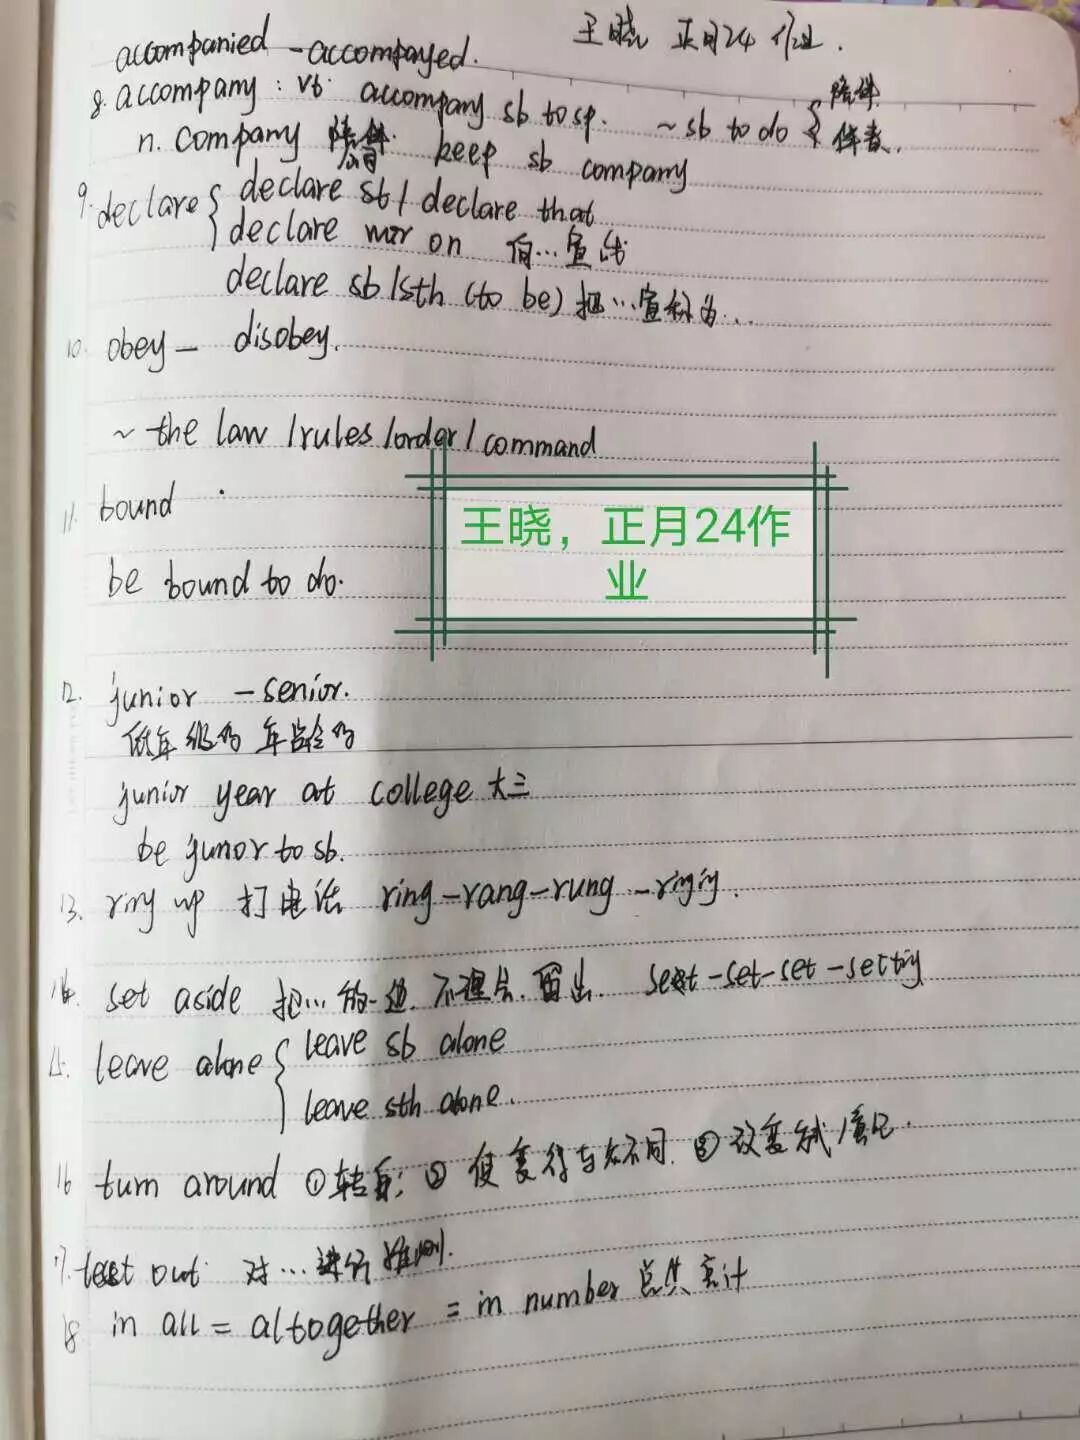 王晓 正月24作业.
accompanied - accompayed.
8. accompany : vt. accompany sb to sp. ~ sb to do { 陪伴
伴奏.
n. company 陪伴 keep sb company
9. declare { declare st / declare that
declare war on 向…宣战
declare sb/sth (to be) 把…宣称为...
10. obey - disobey.
~ the law / rules / order / command
11. bound
be bound to do.
王晓，正月24作
业
12. junior - senior.
低年级的 年龄的
junior year at college 大三
be junor to sb.
13. ring up 打电话 ring - rang - rung - ringing.
14. set aside 把…放一边. 不理会. 留出. set - set - set - setting
15. leave alone { leave sb alone
leave sth alone.
16 turn around ① 转身; ② 使变得与众不同. ③ 改变
17. test out 对…进行推测.
18 in all = altogether = in number 总共 总计